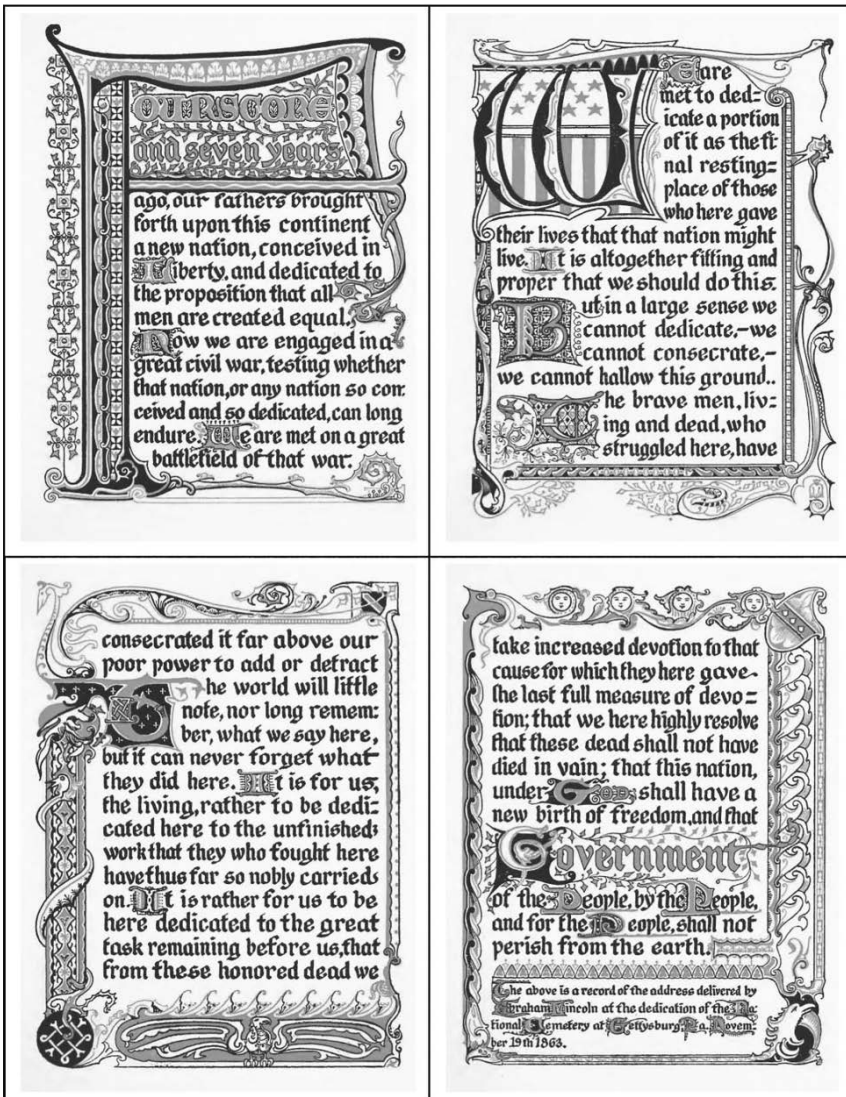 FOURSCORE
and seven years
ago, our fathers brought
forth upon this continent
a new nation, conceived in
Liberty, and dedicated to
the proposition that all
men are created equal.
Now we are engaged in a
great civil war, testing whether
that nation, or any nation so con:
ceived and so dedicated, can long
endure. We are met on a great
battlefield of that war.
We are
met to ded=
icate a portion
of it as the fi
nal resting=
place of those
who here gave
their lives that that nation might
live. It is altogether fitting and
proper that we should do this.
But in a large sense we
cannot dedicate,-we
cannot consecrate,-
we cannot hallow this ground..
The brave men, liv=
ing and dead, who
struggled here, have
consecrated it far above our
poor power to add or detract
The world will little
note, nor long remem:
ber, what we say here,
but it can never forget what
they did here. It is for us,
the living, rather to be dedi:
cated here to the unfinished
work that they who fought here
have thus far so nobly carried
on. It is rather for us to be
here dedicated to the great
task remaining before us, that
from these honored dead we
take increased devotion to that
cause for which they here gave
the last full measure of devo=
tion; that we here highly resolve
that these dead shall not have
died in vain; that this nation,
under GOD, shall have a
new birth of freedom, and that
Government
of the People, by the People,
and for the People, shall not
perish from the earth.
The above is a record of the address delivered by
Abraham Lincoln at the dedication of the Na=
tional Cemetery at Gettysburg, Pa. Novem=
ber 19th 1863.